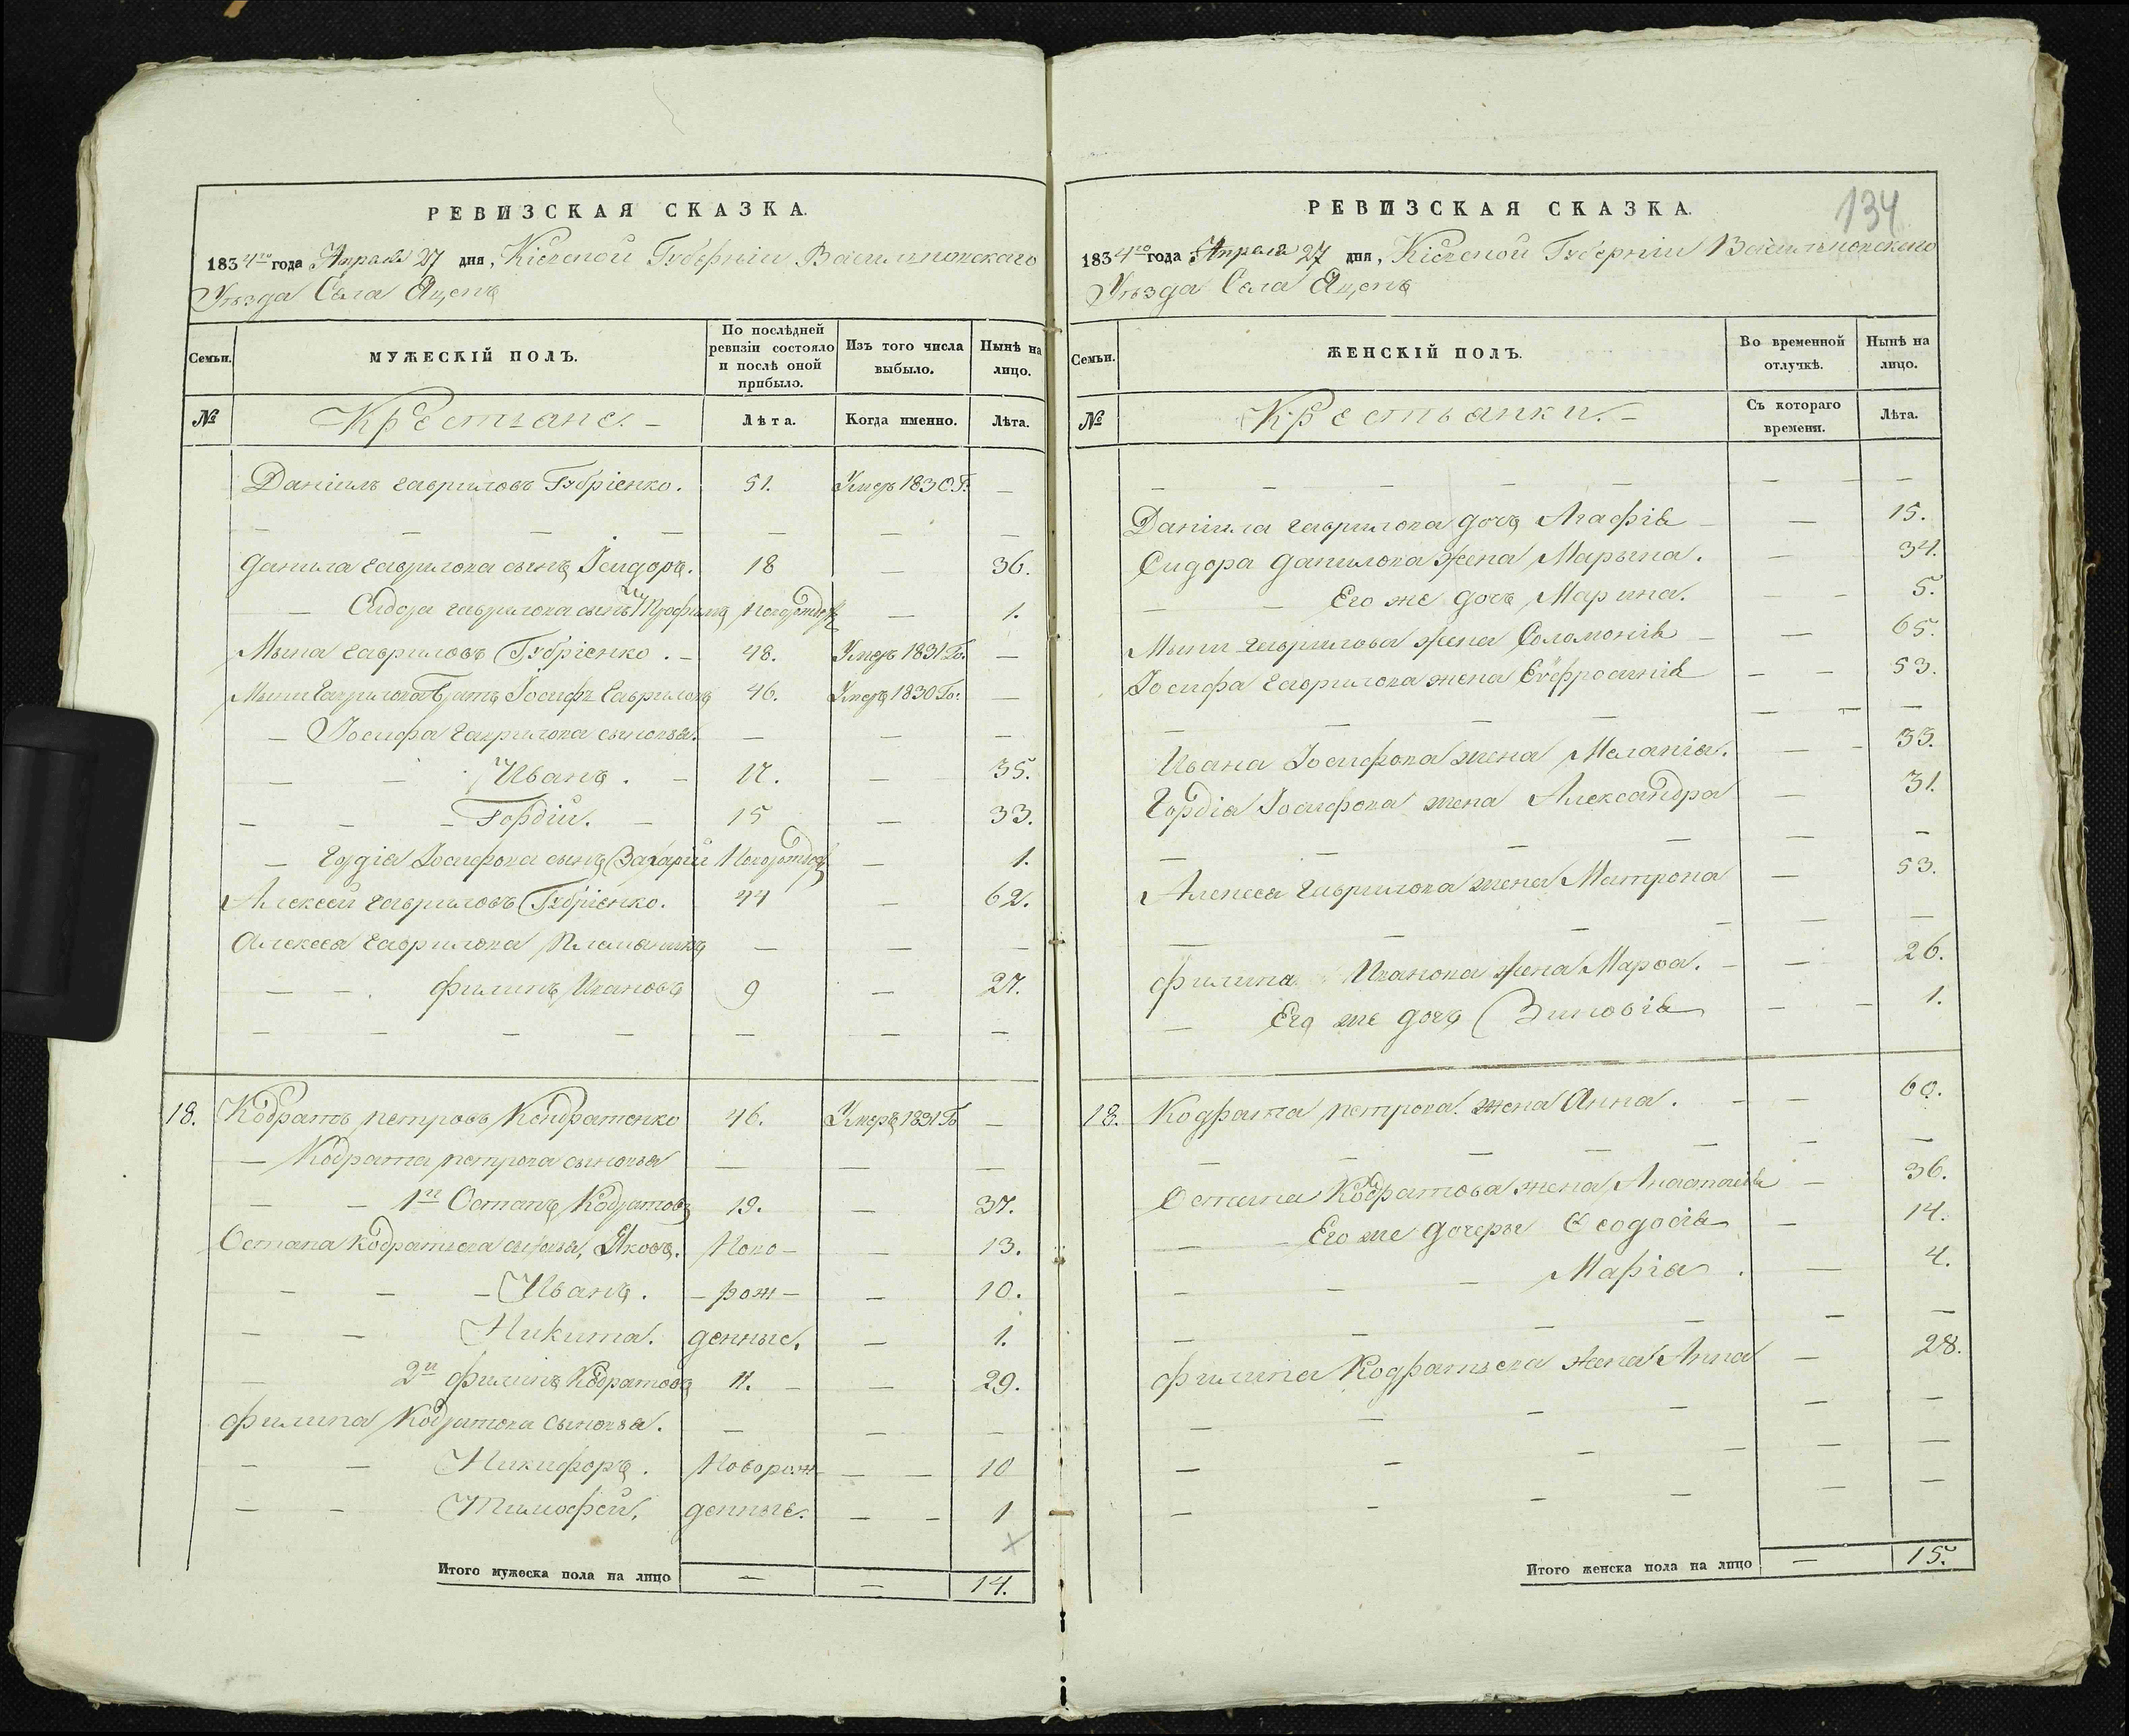 РЕВИЗСКАЯ СКАЗКА.
1834го года Апрѣля 27 дня, Кіевской Губерніи Васильковскаго
Уѣзда Села Яцекъ
Семьи.
МУЖЕСКІЙ ПОЛЪ.
По послѣдней ревизіи состояло и послѣ оной прибыло.
Изъ того числа выбыло.
Нынѣ на лицо.
№
Крестьяне.
Лѣта.
Когда именно.
Лѣта.
Даніилъ Гавриловъ Губріенко. 51. Умеръ 1830 Г. —
— — — — — — —
Данила Гаврилова сынъ Ісидоръ. 18 — 36.
— Сидора Гаврилова сынъ новорожд — 1.
Мына Гавриловъ Губріенко. 48. Умеръ 1831 Го. —
Мыны Гаврилова братъ Іосифъ Гавриловъ 46. Умеръ 1830 Го. —
— Іосифа Гаврилова сыновья. — — —
— — Иванъ. — 17. — 35.
— — — Гордій. — 15 — 33.
— Гордія Іосифова сынъ Захарій новорожд — 1.
Алексей Гавриловъ Губріенко. 44 — 62.
Алексея Гаврилова племянникъ — — —
— — Филипъ Ивановъ 9 — 27.
— — — — — — —
18. Кодратъ Петровъ Кондратенко 46. Умеръ 1831 Го —
— Кодрата Петрова сыновья — — —
— — 1й Остапъ Кодратовъ 19. — 37.
Остапа Кодратьева сыновья, Яковъ. Ново- — 13.
— — — Иванъ. — рож — — 10.
— — Никита. денные. — 1.
— 2й Филипъ Кодратовъ 11. — — 29.
Филипа Кодратова сыновья. — — —
— — Никифоръ. Новорож — — 10
— — Тимофей. денные. — — 1
Итого мужеска пола на лицо — — 14.
134
РЕВИЗСКАЯ СКАЗКА.
1834го года Апрѣля 27 дня, Кіевской Губерніи Васильковскаго
Уѣзда Села Яцекъ
Семьи.
ЖЕНСКІЙ ПОЛЪ.
Во временной отлучкѣ.
Нынѣ на лицо.
№
Крестьянки.
Съ котораго времени.
Лѣта.
— — — — — — —
Даніила Гаврилова дочъ Агафія — — 15.
Сидора Данилова жена Марына. — 34.
— — Его же дочъ Марина. — — 5.
Мыны Гаврилова жена Соломонія — — 65.
Іосифа Гаврилова жена Еѵфросинія — — 53.
— — — — — —
Ивана Іосифова жена Меланія. — — 33.
Гордія Іосифова жена Александра — 31.
— — — — — —
Алексея Гаврилова жена Матрона — 53.
— — — — — —
Филипа Иванова жена Марѳа. — — 26.
— Его же дочъ Зиновія — — 1.
18. Кодрата Петрова жена Анна. — — 60.
— — — — — — —
Остапа Кодратова жена Анастасія — 36.
— — Его же дочеры Ѳеодосія — 14.
— — — Марія. — 4.
— — — — — —
Филипа Кодратьева жена Анна — 28.
— — — — — —
— — — — — —
— — — — — —
Итого женска пола на лицо — 15.